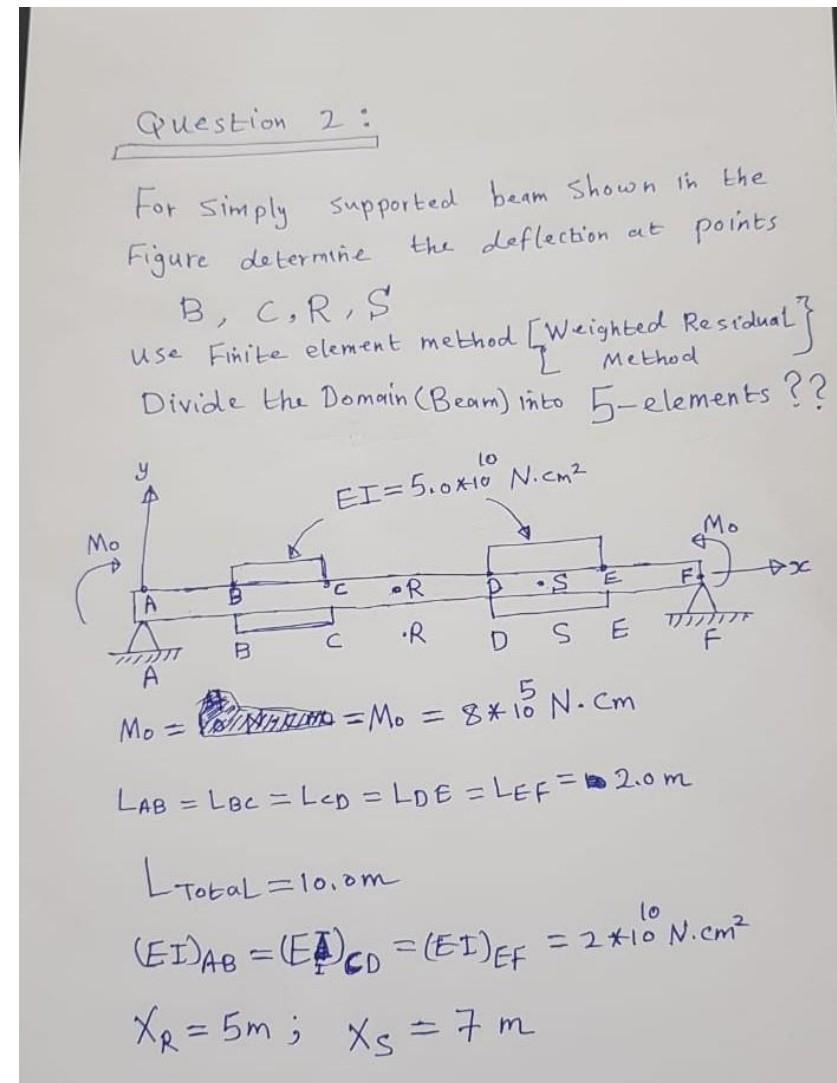 Question 2 :
For Simply supported beam shown in the
Figure determine the deflection at points
B, C, R, S
Use Finite element method [Weighted Residual
Method]
Divide the Domain (Beam) into 5-elements ??
y
EI = 5.0*10^10 N.cm²
Mo Mo
A B C •R D •S E F x
A B C •R D S E F
Mo = = Mo = 8*10^5 N.cm
LAB = LBC = LCD = LDE = LEF = 2.0 m
LTotal = 10.0m
(EI)AB = (EI)CD = (EI)EF = 2*10^10 N.cm²
XR = 5m ; XS = 7 m